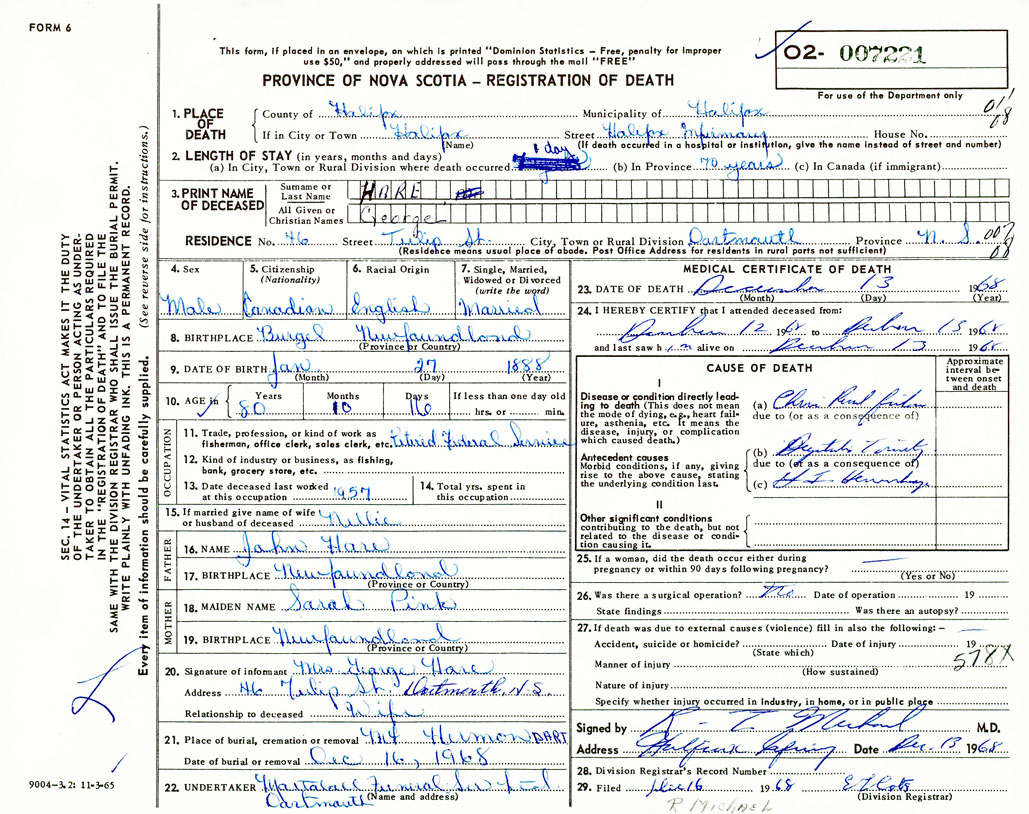 FORM 6
This form, if placed in an envelope, on which is printed "Dominion Statistics – Free, penalty for improper
use $50," and properly addressed will pass through the mail "FREE"
PROVINCE OF NOVA SCOTIA – REGISTRATION OF DEATH
O2- 007221
For use of the Department only
1. PLACE OF DEATH
County of Halifax Municipality of Halifax
If in City or Town Halifax Street Halifax Infirmary House No.
(Name) (If death occurred in a hospital or institution, give the name instead of street and number)
2. LENGTH OF STAY (in years, months and days)
(a) In City, Town or Rural Division where death occurred 1 day (b) In Province 70 years (c) In Canada (if immigrant)
3. PRINT NAME OF DECEASED
Surname or Last Name HARE
All Given or Christian Names George
RESIDENCE No. 46 Street Tulip St. City, Town or Rural Division Dartmouth Province N. S.
(Residence means usual place of abode. Post Office Address for residents in rural parts not sufficient)
4. Sex
Male
5. Citizenship
(Nationality)
Canadian
6. Racial Origin
English
7. Single, Married,
Widowed or Divorced
(write the word)
Married
8. BIRTHPLACE Burgeo Newfoundland
(Province or Country)
9. DATE OF BIRTH Jan 27 1888
(Month) (Day) (Year)
10. AGE in Years Months Days If less than one day old
80 10 16 hrs. or min.
OCCUPATION
11. Trade, profession or kind of work as
fisherman, office clerk, sales clerk, etc. Retired Federal Service
12. Kind of industry or business, as fishing,
bank, grocery store, etc.
13. Date deceased last worked
at this occupation 1957
14. Total yrs. spent in
this occupation
15. If married give name of wife
or husband of deceased Nellie
FATHER
16. NAME John Hare
17. BIRTHPLACE Newfoundland
(Province or Country)
MOTHER
18. MAIDEN NAME Sarah Pink
19. BIRTHPLACE Newfoundland
(Province or Country)
20. Signature of informant Mrs. George Hare
Address 46 Tulip St. Dartmouth, N.S.
Relationship to deceased Wife
21. Place of burial, cremation or removal Mt Hermon DART
Date of burial or removal Dec 16, 1968
22. UNDERTAKER Mattatall Funeral Ser
(Name and address)
Dartmouth
MEDICAL CERTIFICATE OF DEATH
23. DATE OF DEATH December 13 1968
(Month) (Day) (Year)
24. I HEREBY CERTIFY that I attended deceased from:
December 12 1968 to December 13 1968
and last saw him alive on December 13 1968
CAUSE OF DEATH
Approximate
interval be-
tween onset
and death
I
Disease or condition directly lead-
ing to death (This does not mean
the mode of dying, e.g., heart fail-
ure, asthenia, etc. It means the
disease, injury, or complication
which caused death.)
(a)
due to (or as a consequence of)
Antecedent causes
Morbid conditions, if any, giving
rise to the above cause, stating
the underlying condition last.
(b)
due to (or as a consequence of)
(c)
II
Other significant conditions
contributing to the death, but not
related to the disease or condi-
tion causing it.
25. If a woman, did the death occur either during
pregnancy or within 90 days following pregnancy?
(Yes or No)
26. Was there a surgical operation? No Date of operation 19
State findings Was there an autopsy?
27. If death was due to external causes (violence) fill in also the following: –
Accident, suicide or homicide? Date of injury 19
(State which)
578X
Manner of injury
(How sustained)
Nature of injury
Specify whether injury occurred in industry, in home, or in public place
Signed by M.D.
Address Date Dec. 13 1968
28. Division Registrar's Record Number
29. Filed Dec 16 1968
(Division Registrar)
R MICHAEL
SEC. 14 – VITAL STATISTICS ACT MAKES IT THE DUTY
OF THE UNDERTAKER OR PERSON ACTING AS UNDER-
TAKER TO OBTAIN ALL THE PARTICULARS REQUIRED
IN THE "REGISTRATION OF DEATH" AND TO FILE THE
SAME WITH THE DIVISION REGISTRAR WHO SHALL ISSUE THE BURIAL PERMIT.
WRITE PLAINLY WITH UNFADING INK. THIS IS A PERMANENT RECORD.
Every item of information should be carefully supplied. (See reverse side for instructions.)
9004–3.2: 11-3-65